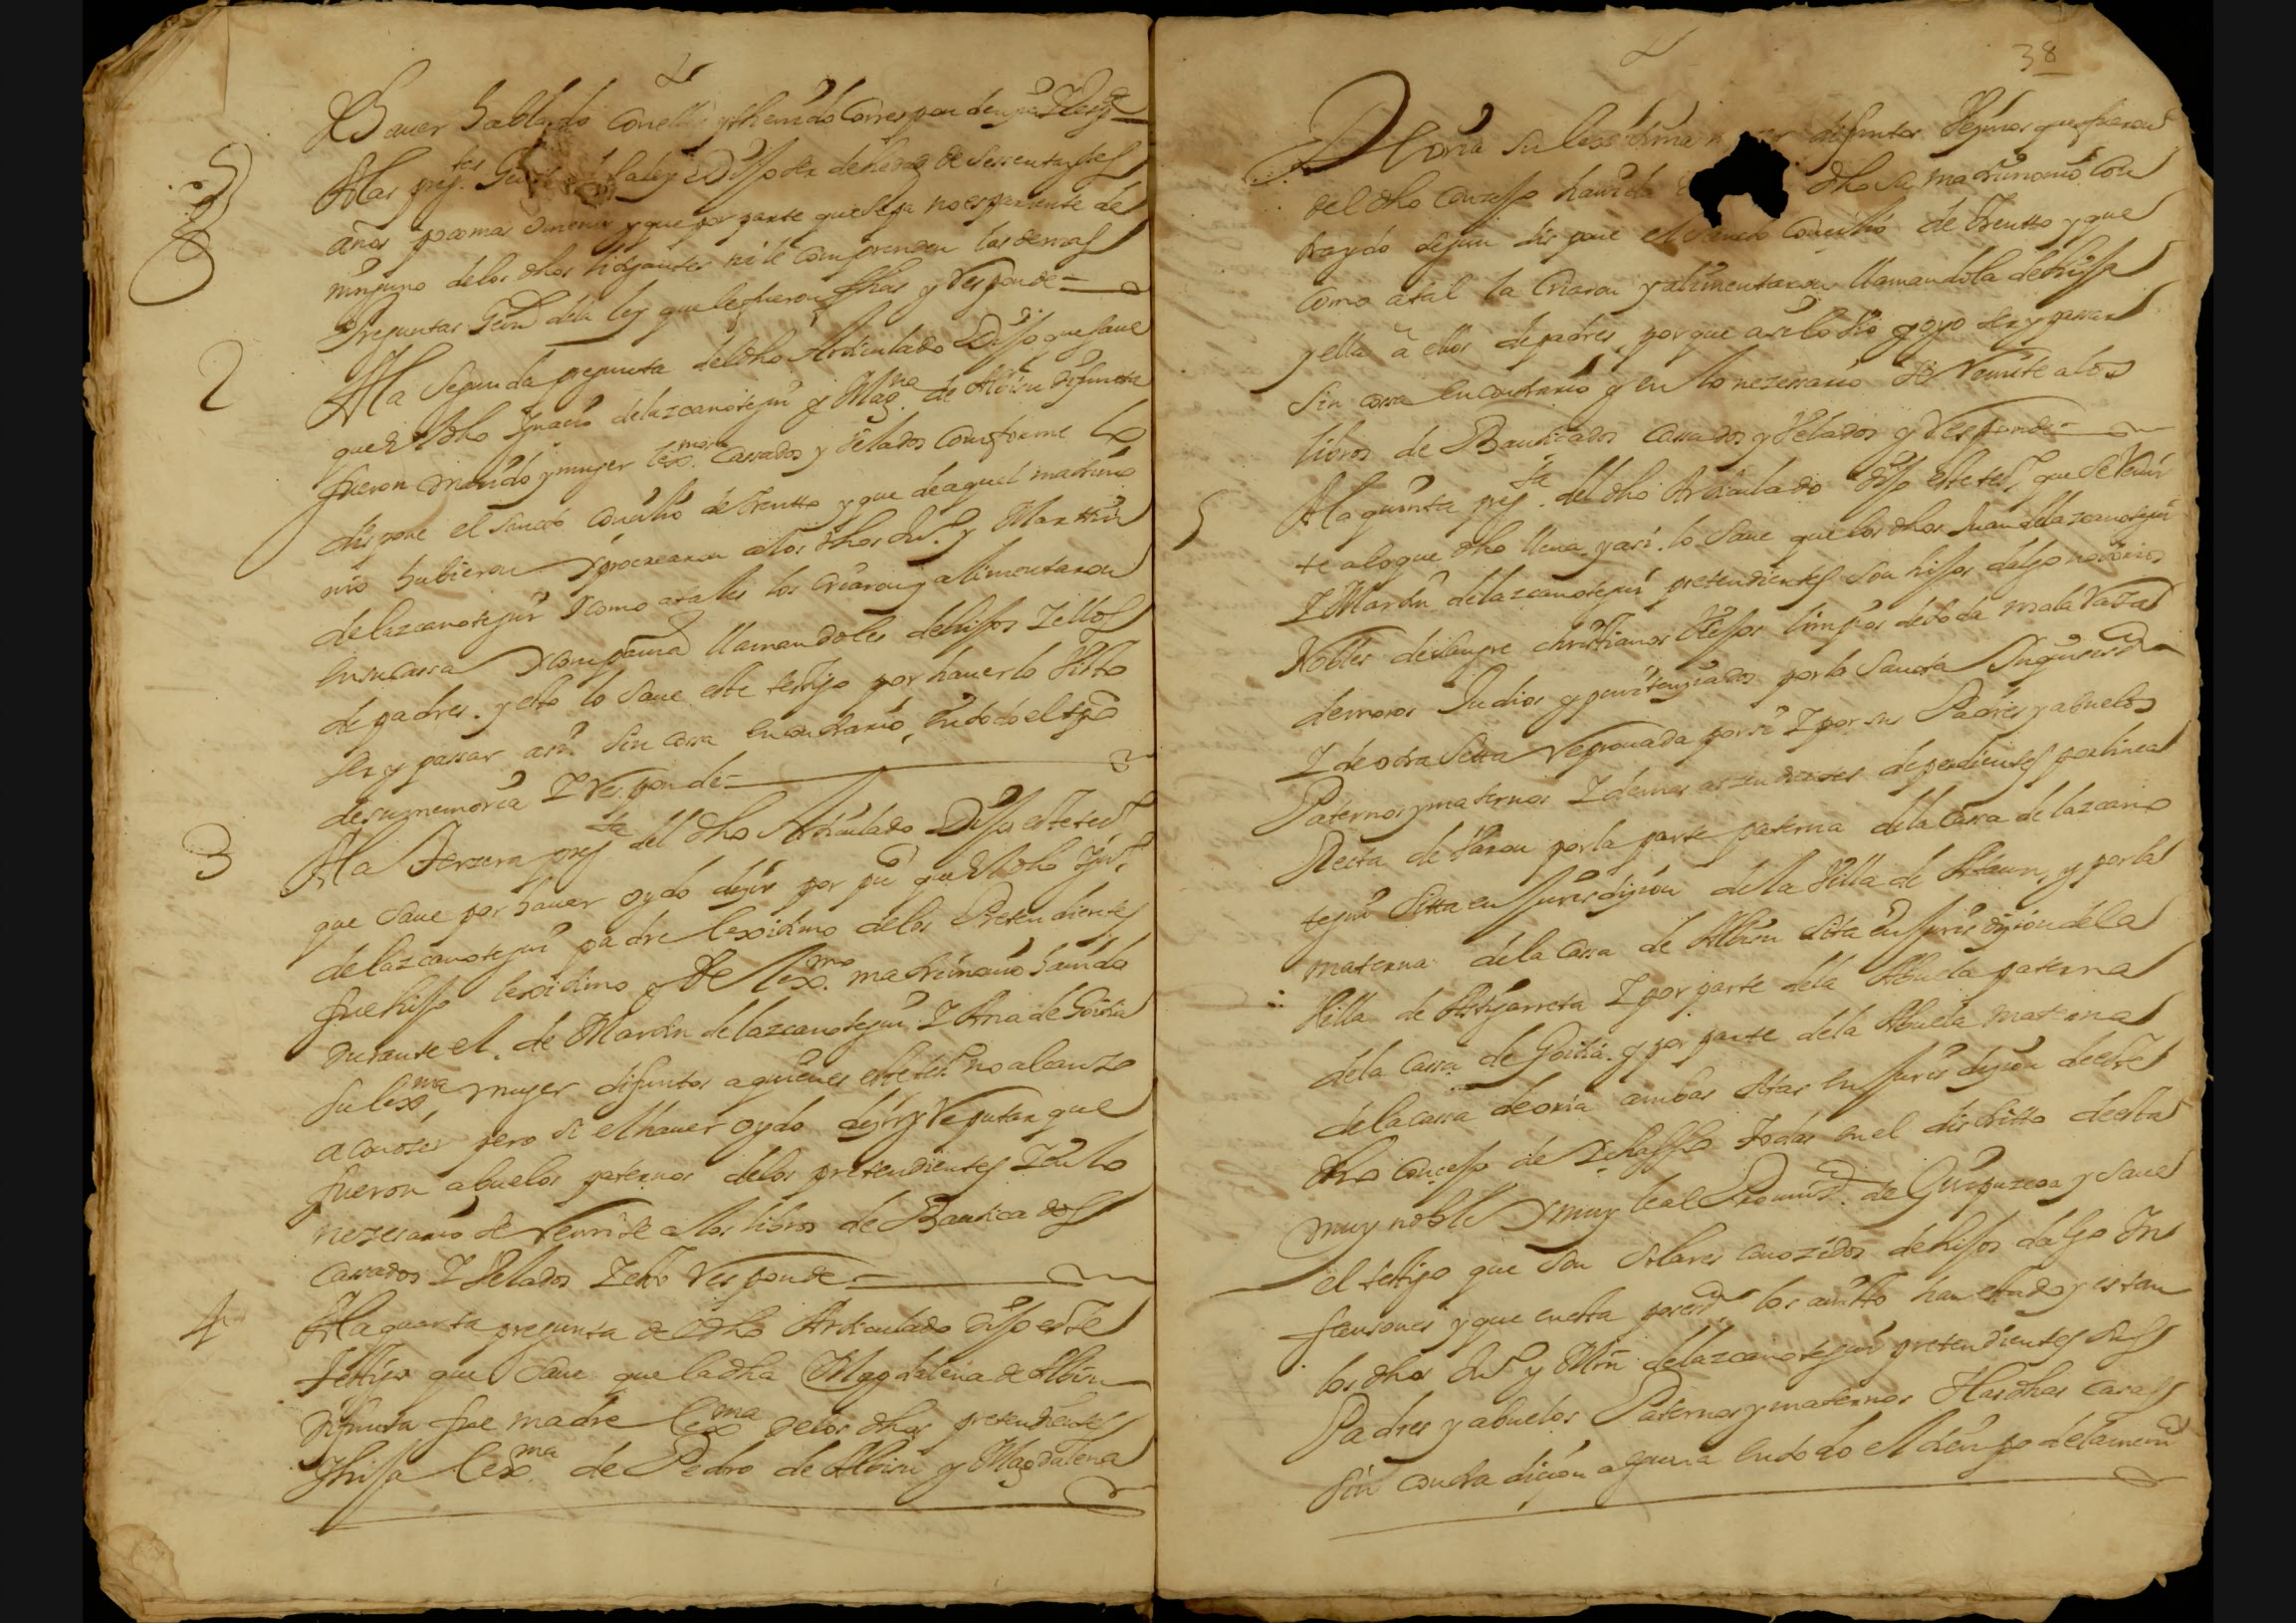 hauer hablado con ellos y thenido correspondençia
A las preg.tas Gen de la ley Dijo ser de hedad de sesenta y seis
años poco mas o menos y que por parte que sepa no es pariente de
ninguno de los dhos litigantes ni le comprenden las demas
Preguntas Gen de la ley que le fueron fhas y responde =
2 A la segunda pregunta del dho Articulado Dijo que saue
que el dho Ignaçio de lazcanotegui y Mag.na de Albisu difunta
fueron marido y muger lex.mos cassados y belados conforme lo
dispone el sancto conçilio de trentto y que de aquel matrimo
nio hubieron y procrearon a los dhos Ju.o y Marttin
de lazcanotegui y como a tales los criaron y alimentaron
en su cassa y compania llamandoles de hijos y ellos
de padres. y esto lo saue este testigo por hauerlo visto
ser y passar asi sin cossa en contrario, en todo el tpo
de su memoria y responde =
3 A la terzera preg.ta del dho Articulado Dijo este test.o
que saue por hauer oydo deçir por pu.co que el dho Ig.o
de lazcanotegui padre lexitimo de los Pretendientes
fue hijo lexitimo y de lex.mo matrimonio hauido
durante el. de Martin de lazcanotegui y Ana de Goitia
su lex.ma muger difuntos a quienes este test.o no alcanzo
a conozer pero si el hauer oydo deçir y reputar que
fueron abuelos paternos de los pretendientes y en lo
nezesario se remite a los libros de Bautiçados
cassados y Velados y esto responde =
4 A la quarta pregunta del dho Articulado dijo este
testigo que saue que la dha Magdalena de Albisu
difunta fue madre lex.ma de los dhos pretendientes
y hija lex.ma de Pedro de Albisu y Magdalena
38
de Oria su lexitima muger difuntos Vezinos que fueron
del dho conzejo hauida dho su matrimonio con
traydo segun dispone el sancto conçilio de trentto y que
como a tal la criaron y alimentaron llamandola de hija
y ella â ellos de padres, porque asi lo vio y oyo ser y passar
sin cossa en contrario y en lo nezessario se remite a los
libros de Bautizados cassados y Velados y responde =
5 A la quinta preg.ta del dho Articulado dijo este test.o que se remi
te a lo que dho lleua y asi lo saue que los dhos Juan de lazcanotegui
y Martin de lazcanotegui pretendientes son hijos dalgo notorios
Nobles de sangre christianos viejos limpios de toda mala raza
de moros Judios y penitençiados por la sancta Inquisiçi.on
y de otra setta reprouada por si y por sus Padres y abuelos
Paternos y maternos y demas aszendientes dependientes por linea
Recta de varon por la parte paterna de la cassa de lazcano
tegui sitta en jurisdiçion de la Villa de Ataun, y por la
materna de la cassa de Albisu sita en jurisdiçion de la
Villa de Astigarreta y por parte de la Abuela paterna
de la cassa de Goitia. y por parte de la Abuela materna
de la cassa de oria ambas sitas en jurisdiçion de este
dho conçejo de ychasso todas en el distritto de esta
muy noble y muy leal Prouin.a de Guipuzcoa y saue
el testigo que son solares conozidos de hijos dalgo In
fanzones y que en esta posess.on los an.tto han estado y estan
los dhos Ju.o y Mrn de lazcanotegui pretendientes sus
Padres y abuelos Paternos y maternos y las dhas casas
sin contradiçion alguna en todo el tienpo de la memori